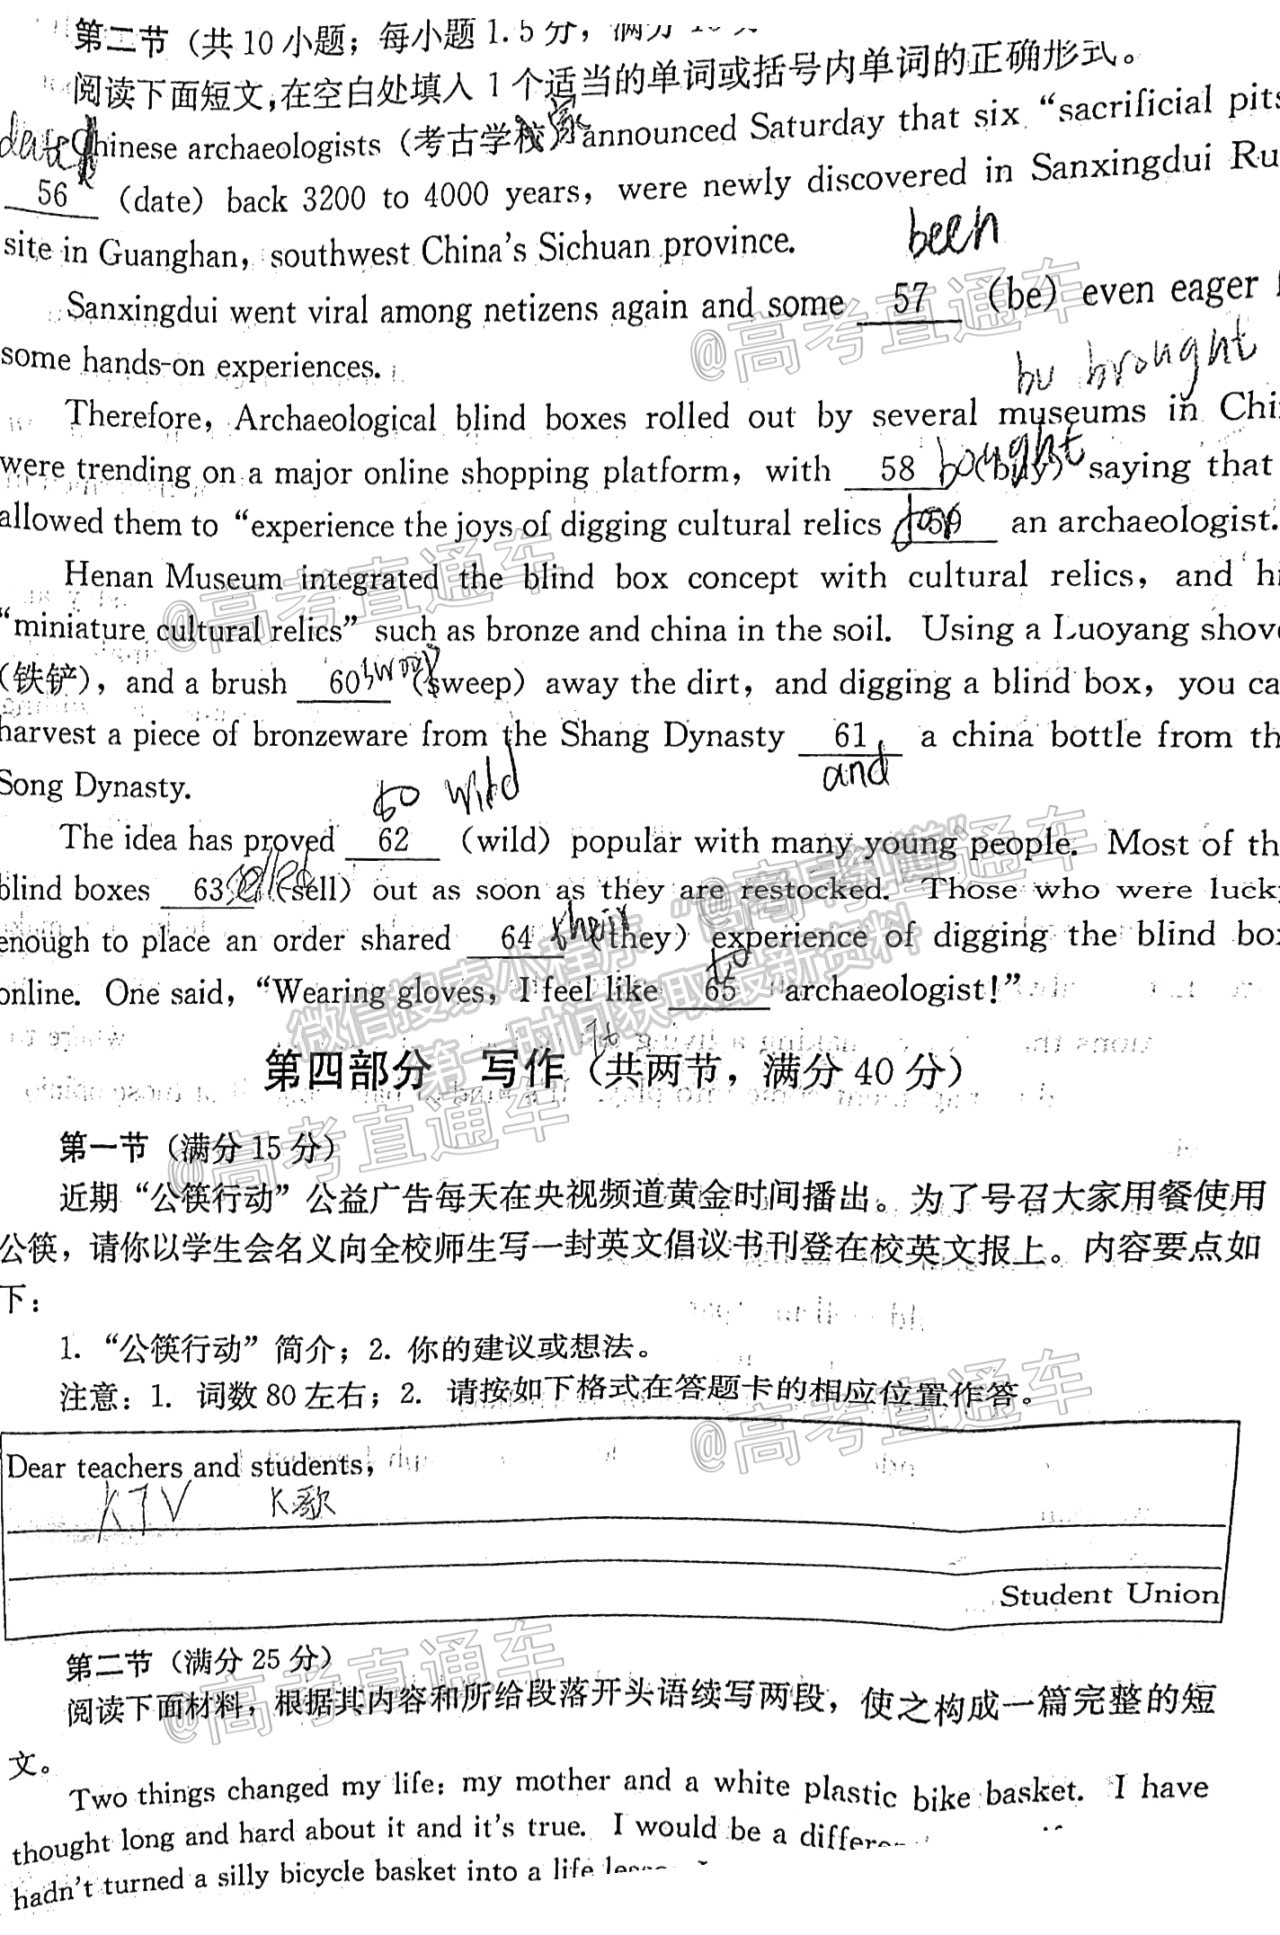 第二节（共 10 小题；每小题 1.5 分，满分
阅读下面短文，在空白处填入 1 个适当的单词或括号内单词的正确形式。
Chinese archaeologists（考古学家）announced Saturday that six “sacrificial pits
56 （date）back 3200 to 4000 years, were newly discovered in Sanxingdui
site in Guanghan, southwest China's Sichuan province.
been
Sanxingdui went viral among netizens again and some 57 （be）even eager
some hands-on experiences.
brought
Therefore, Archaeological blind boxes rolled out by several museums in
were trending on a major online shopping platform, with 58 bought （buy）saying that
allowed them to “experience the joys of digging cultural relics 59 an archaeologist.
Henan Museum integrated the blind box concept with cultural relics, and
“miniature cultural relics” such as bronze and china in the soil. Using a Luoyang
（铁铲）, and a brush 60 （sweep）away the dirt, and digging a blind box, you
harvest a piece of bronzeware from the Shang Dynasty 61 a china bottle from
and
Song Dynasty.
to wild
The idea has proved 62 （wild）popular with many young people. Most of
blind boxes 63 （sell）out as soon as they are restocked. Those who were
enough to place an order shared 64 their （they）experience of digging the blind
online. One said, “Wearing gloves, I feel like 65 archaeologist!”
to
第四部分 写作（共两节，满分 40 分）
第一节（满分 15 分）
近期“公筷行动”公益广告每天在央视频道黄金时间播出。为了号召大家用餐使用
公筷，请你以学生会名义向全校师生写一封英文倡议书刊登在校英文报上。内容要点如
下：
1. “公筷行动”简介；2. 你的建议或想法。
注意：1. 词数 80 左右；2. 请按如下格式在答题卡的相应位置作答。
Dear teachers and students,
KTV K歌
Student Union
第二节（满分 25 分）
阅读下面材料，根据其内容和所给段落开头语续写两段，使之构成一篇完整的短
文。
Two things changed my life: my mother and a white plastic bike basket. I have
thought long and hard about it and it's true. I would be a
hadn't turned a silly bicycle basket into a life
@高考直通车
@高考直通车
@高考直通车
微信搜索小程序“高考早知道”
第一时间获取最新资料
@高考直通车
@高考直通车
@高考直通车